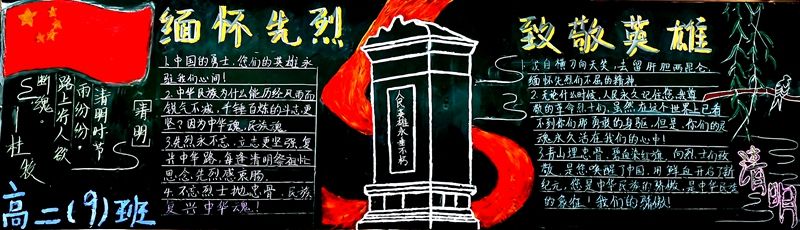 清明
清明时节
雨纷纷，
路上行人欲
断魂
—杜牧
高二(9)班
缅怀先烈
1.中国的勇士，您们的英雄永
驻我们心间！
2.中华民族为什么能历经风雨而
锐气不减，千锤百炼的斗志更
坚？因为中华魂，民族魂
3.先烈永不忘，立志更坚强，复
兴中华路，每逢清明祭祖
思念先烈感衷肠
4.不忘烈士抛忠骨，民族
复兴中华魂！
人民英雄永垂不朽
致敬英雄
1.我自横刀向天笑，去留肝胆两昆仑，
缅怀先烈们不屈的精神
2.无论什么时候，人民永久记住您，我尊
敬的革命烈士们，虽然在这个世界上已看
不到你们那勇敢的身躯，但是，你们的灵
魂永久活在我们的心中！
3.青山埋忠骨，碧血染红旗，向烈士们致
敬，是您唤醒了中国，用鲜血开启了新
纪元，您是中华民族的骄傲，是中华民族
的象征！我们的骄傲！
清明